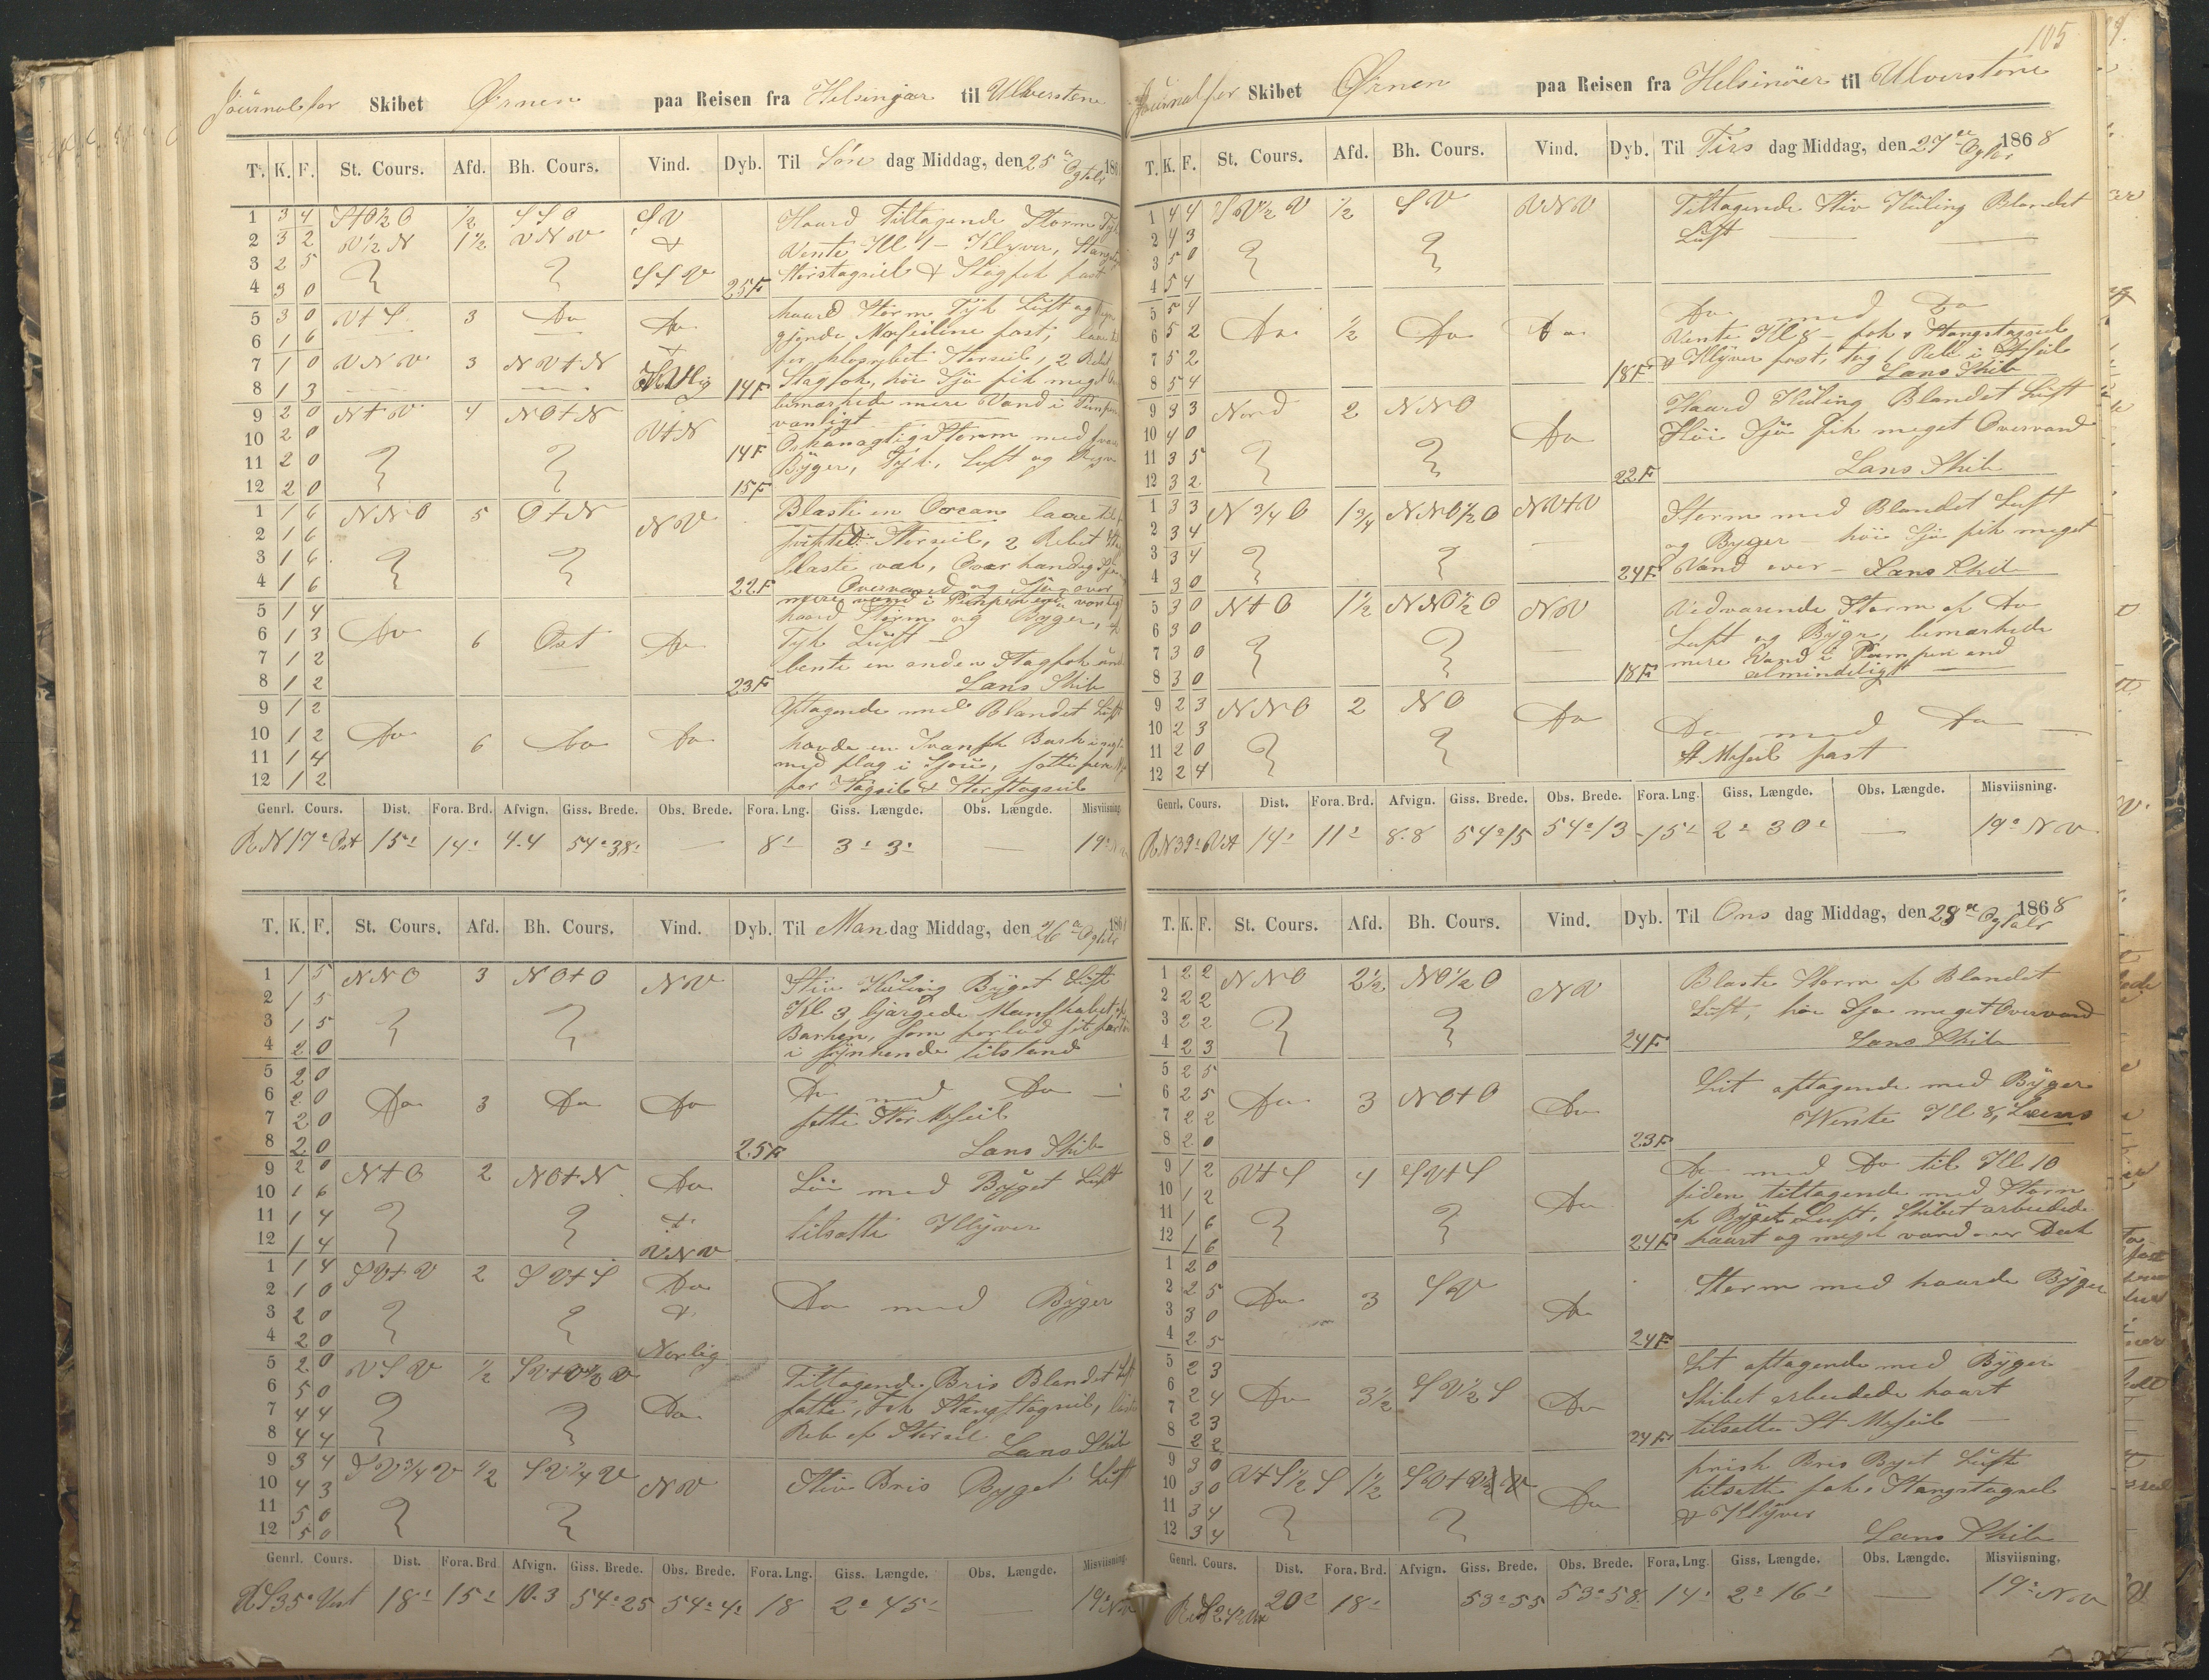 Journal for Skibet Ørnen paa Reisen fra Helsingør til Ulverstone
T. K. F. St. Cours. Afd. Bh. Cours. Vind. Dyb. Til Søn dag Middag, den 25 186
1 3 4 ½ SSO SV Haard Tiltagende Storm
2 3 2 V½N 1½ VNV & Vente Kl 1 - Klyver,
3 2 5 SSV Storstagseil & Stagfok fast
4 3 0 25F
5 3 0 V+S 3 Do Do haard Storm Tyk Luft og
6 1 6 Mersseilene fast,
7 1 0 VNV 3 NV+N Storseil, 2 Rebet
8 1 3 14F Stagfok, høi Sjø fik meget
bemærkede mere Vand i
9 2 0 N+V 4 NO+N V+N vanligt
10 2 0 14F Orkanagtig Storm med
11 2 0 Byger, Tyk Luft og
12 2 0 15F
1 1 6 NNO 5 O+N NV Blaste en Orcan laae til
2 1 6 Storseil, 2 Rebet
3 1 6 blaste væk,
4 1 6 22F Overvand og Sjø over
mere vand i Pumpen end vanligt
5 1 4 haard Storm og Byger,
6 1 3 Do 6 Ost Do Tyk Luft
7 1 2 bente en anden Stagfok
8 1 2 23F Lans Skib
9 1 2 Aftagende med Blandet Luft
10 1 2 Do 6 Do Do havde en Bark i
11 1 4 med flag i
12 1 2 Stagseil & Storstagseil
Genrl. Cours. Dist. Fora. Brd. Afvign. Giss. Brede. Obs. Brede. Fora. Lng. Giss. Længde. Obs. Længde. Misviisning.
R N 17° Ost 15' 14' 4.4 54° 38' — 8' 3° 3' — 19°
T. K. F. St. Cours. Afd. Bh. Cours. Vind. Dyb. Til Man dag Middag, den 26 186
1 1 5 NNO 3 NO+O NV Stiv Kuling Byget Luft
2 1 5 Kl 3 bjærgede Manskabet
3 1 5 Barken, som forlod sit
4 2 0 i synkende tilstand
5 2 0
6 2 0 Do 3 Do Do Do med Do
7 2 0 satte Stor Mseil
8 2 0 25F Lans Skib
9 2 0 N+O 2 NO+N Do Løi med Byget Luft
10 1 6
11 1 4 & tilsatte Klyver
12 1 4 VNV
1 1 4 SV+V 2 SV+S Do
2 1 0 Do med Byger
3 2 0 &
4 2 0 Norlig
5 2 0 VSV ½ Tiltagende Bris Blandet Luft
6 5 0 satte, Fok Stangstagseil,
7 4 4 Do Reb af Storseil
8 4 4 Lans Skib
9 3 4 SV¾V ½ SV¼V Stiv Bris Byget Luft
10 4 3 NV
11 5 0
12 5 0
Genrl. Cours. Dist. Fora. Brd Afvign. Giss. Brede. Obs. Brede. Fora. Lng. Giss. Længde. Obs. Længde. Misviisning.
R S 35° Vest 18' 15' 10.3 54° 25 54° 4' 18 2° 45' — 19°
105
Journal for Skibet Ørnen paa Reisen fra Helsinöer til Ulverstone
T. K. F. St. Cours. Afd. Bh. Cours. Vind. Dyb. Til Tirs dag Middag, den 27 1868
1 4 4 SV½V ½ SV VNV Tiltagende Stiv Kuling Blandet
2 4 3 Luft
3 5 0
4 5 4
5 5 4 Do med Do
6 5 2 Do ½ Do Do Vente Kl 8 - fok, Stangstagseil
7 5 2 & Klyver fast, tog 1 Reb i St seil
8 5 4 18F Lans Skib
9 3 3 Nord 2 NNO Haard Kuling Blandet Luft
10 4 0 Do Høi Sjø fik meget Overvand
11 3 5 Lans Skib
12 3 2 22F
1 3 3 N¾O 1¾ NNO½O NV+V Storm med Blandet Luft
2 3 4 og Byger - høi Sjø fik meget
3 3 4 Vand over - Lans Skib
4 3 0 24F
5 3 0 N+O 1½ NNO½O NV Vedvarende Storm af Do
6 3 0 Luft og Byger, bemærkede
7 3 0 mere Vand i Pumpen end
8 3 0 18F almindeligt
9 2 3 NNO 2 NO Do
10 2 3 Do med Do
11 2 0 St Mseil fast
12 2 4
Genrl. Cours. Dist. Fora. Brd. Afvign. Giss. Brede. Obs. Brede. Fora. Lng. Giss. Længde. Obs. Længde. Misviisning.
R N 39° 14' 11' 8.8 54° 15 54° 13 15' 2° 30' — 19° NV
T. K. F. St. Cours. Afd. Bh. Cours. Vind. Dyb. Til Ons dag Middag, den 28 1868
1 2 2 NNO 2½ NO½O NV Blaste Storm af Blandet
2 2 2 Luft, høi Sjø meget Overvand
3 2 2 Lans Skib
4 2 3 24F
5 2 5 Lit aftagende med Byger
6 2 5 Do 3 NO+O Do Wente Kl 8, Læns
7 2 2
8 2 0 23F
9 1 2 V+S 4 SV+S Do med Do til Kl 10
10 1 2 Do siden tiltagende med Storm
11 1 6 af Byget Luft, Skibet arbeidede
12 1 6 24F haart og meget vand over Dæk
1 2 0 Storm med haarde Byger
2 2 5 Do 3 SV Do
3 3 0
4 2 5 24F
5 2 3 Lit aftagende med Byger
6 2 4 Do 3½ SV½S Do Skibet arbeidede haart
7 2 3 tilsatte St Mseil
8 2 2 24F
9 3 0 V+S½S 1½ frisk Bris Byet Luft
10 3 0 Do tilsatte fok, Stangstagseil
11 3 4 & Klyver
12 3 4 Lans Skib
Genrl. Cours. Dist. Fora. Brd. Afvign. Giss. Brede. Obs. Brede. Fora. Lng. Giss. Længde. Obs. Længde. Misviisning.
20' 18' 53° 55 53° 58 14' 2° 16' — 19° NV